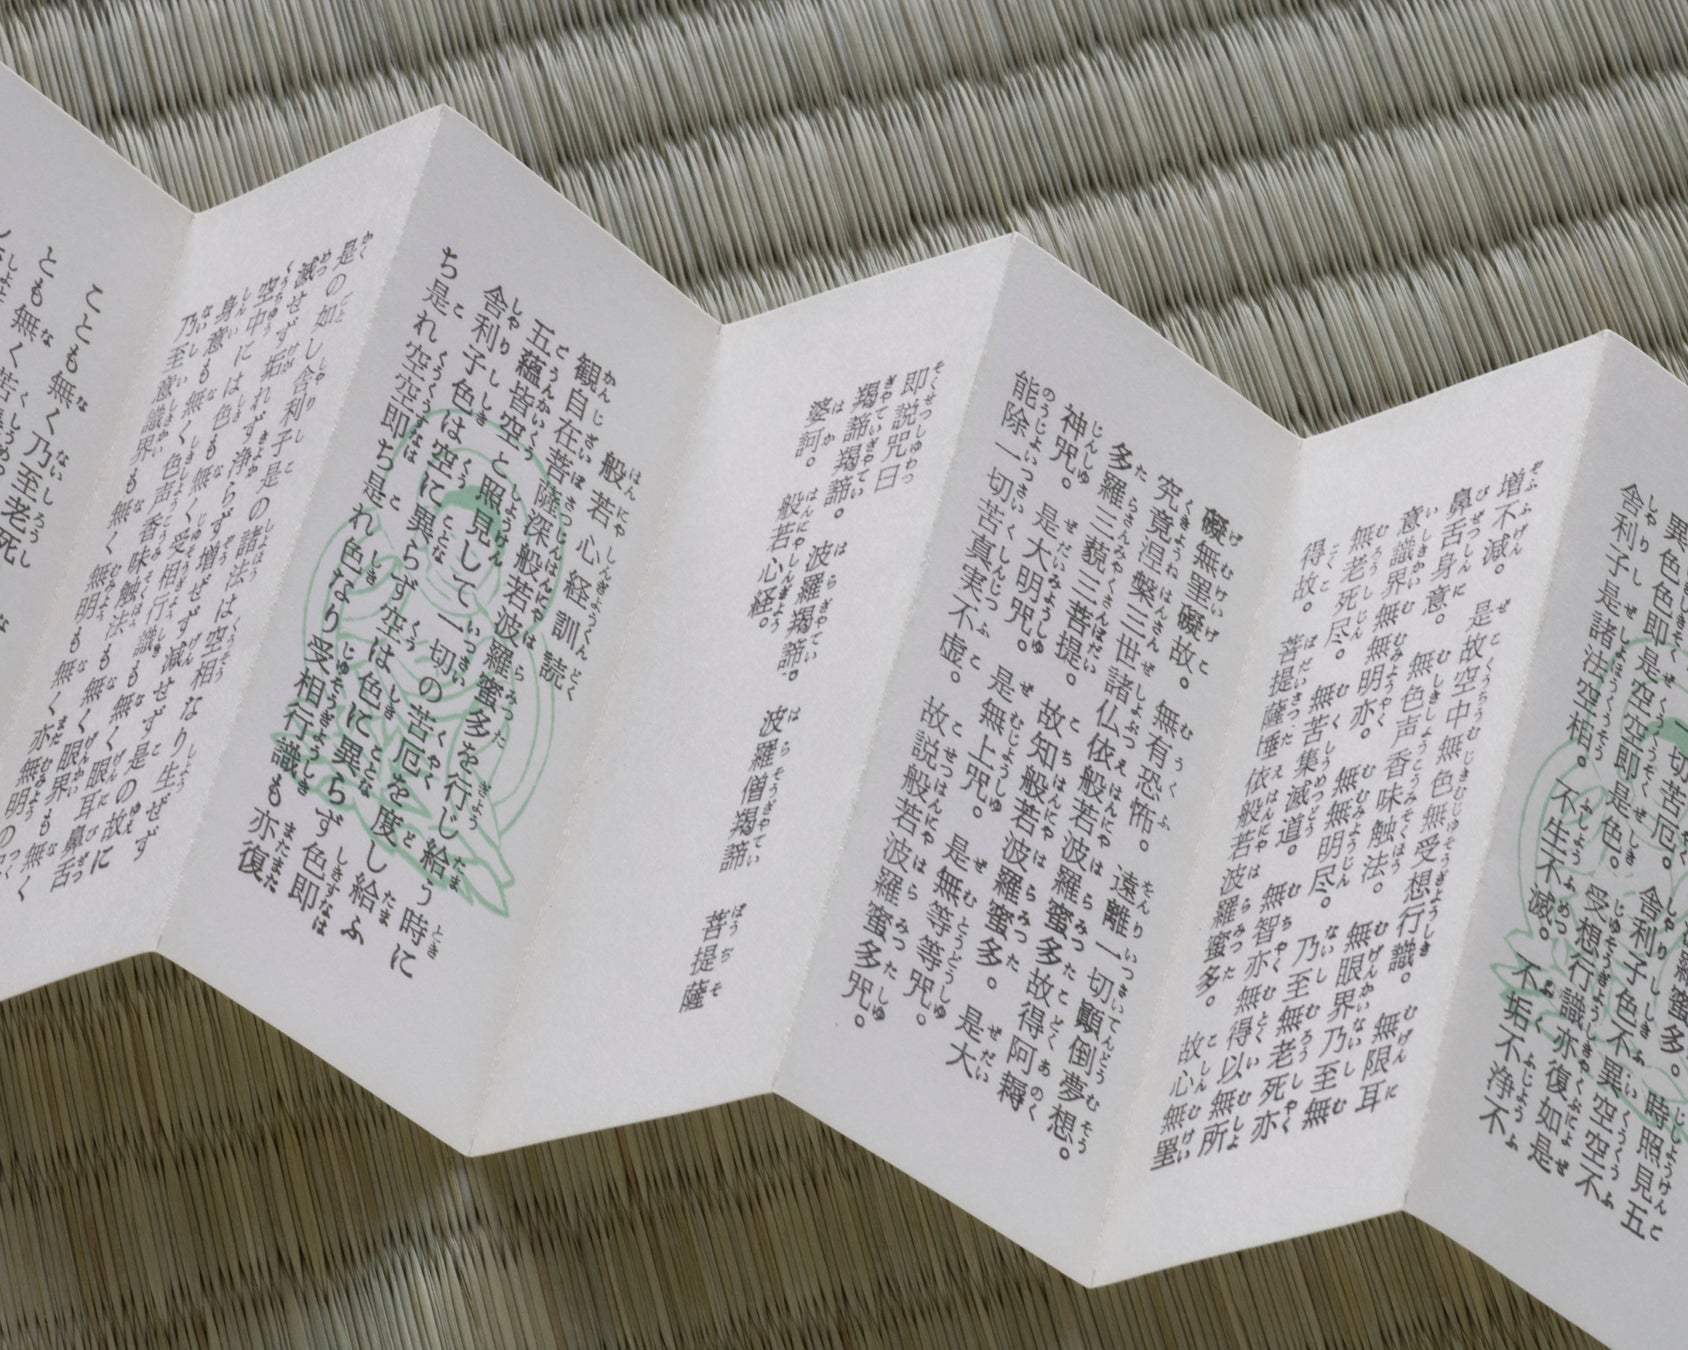 羅蜜多。時照見五
一切苦厄。舎利子色不異空空不
異色色即是空空即是色。受想行識亦復如是
舎利子是諸法空相。不生不滅。不垢不浄不
増不減。是故空中無色無受想行識。無限耳
鼻舌身意。無色声香味触法。無眼界乃至無
意識界無無明亦。無無明尽。乃至無老死亦
無老死尽。無苦集滅道。無智亦無得以無所
得故。菩提薩埵依般若波羅蜜多。故心無罣
礙無罣礙故。無有恐怖。遠離一切顛倒夢想。
究竟涅槃三世諸仏依般若波羅蜜多故得阿耨
多羅三藐三菩提。故知般若波羅蜜多。是大
神咒。是大明咒。是無上咒。是無等等咒。
能除一切苦真実不虚。故説般若波羅蜜多咒。
即説咒曰
羯諦羯諦。波羅羯諦。波羅僧羯諦 菩提薩
婆訶。般若心経。
般若心経訓読
観自在菩薩深般若波羅蜜多を行じ給う時に
五蘊皆空と照見して一切の苦厄を度し給ふ
舎利子色は空に異らず空は色に異らず色即
ち是れ空空即ち是れ色なり受相行識も亦復
是の如し舎利子是の諸法は空相なり生ぜず
滅せず垢れず浄らず増ぜず減せず是の故に
空中には色も無く受相行識も無く眼耳鼻舌
身意も無く色声香味触法も無く眼界も無く
乃至意識界も無く無明も無く亦無明の
ことも無く乃至老死
とも無く苦